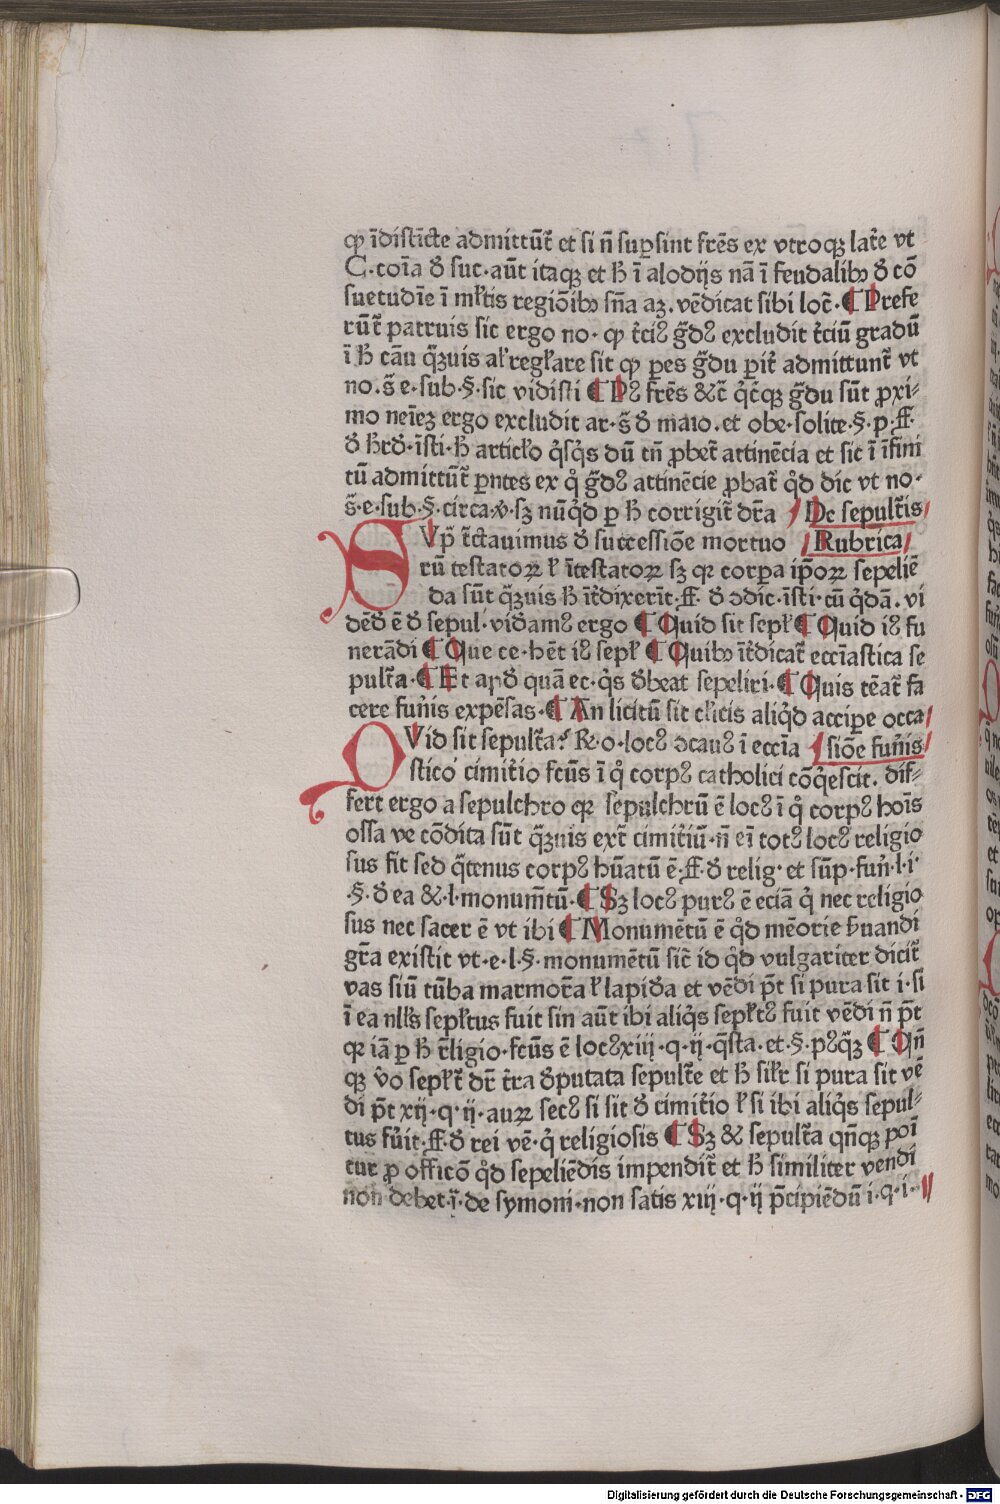 qp īdistīcte admittūt̄ et si n̄ suꝑsint fr̄es ex vtroqꝫ lat̄e vt
C·coīa ꝺ̄ suc·aūt itaqꝫ et ħ ī alodijs nā ī feudalibꝫ ꝺ̄ cō
suetudīe ī ml̄tis regiōibꝫ sn̄a aꝫ. vēdicat sibi loc̄· ¶ Prefe
rūt̄ patruis sic ergo no· ꝙ t̄ciꝰ g̃dꝰ excludit t̄ciū gradū
ī ħ cāu q̄ꝫuis al̓ regl̓are sit ꝙ ꝑes g̃du ꝑit̄ admittunt̄ vt
no. s̄ e·sub·§·sic vidisti ¶ Pꝰ fr̄es &c̄ q̓cq̓ꝫ g̃du sūt ꝓxi⸗
mo neīeꝫ ergo excludit ar·s̄ ꝺ̄ maio. et obe·solite·§·p·ff·
ꝺ̄ ħrꝺ̄·īsti·ħ articl̓o q̓sq̓s dū tn̄ ꝓbet̄ attinēcia et sic ī īfini
tū admittūt̄ ꝑntes ex q̊ g̃dꝰ attinēcie ꝓbat̄ q̊d dic vt no·
s̄·e·sub·§·circa·ꝟ·sꝫ nūq̊d ꝑ ħ corrigit̄ dr̄a De sepult̄is
SVp̄ t̄ctauimus ꝺ̄ successiōe mortuo Rubrica
rū testatoꝝ ł ītestatoꝝ sꝫ qꝛ corꝑa ip̄oꝝ sepeliē
da sūt q̄ꝫuis ħ īt̄dixerīt·ff· ꝺ̄ ↄdic·īsti·cū q̊dā. vi
dēd̄ ē ꝺ̄ sepul·vid̄amꝰ ergo ¶ Quid sit sepł ¶ Quid iꝰ fu
nerādi ¶ Que ec·hēt iꝰ sepł ¶ Quibꝫ īt̄dicat̄ eccīastica se
pult̄a·¶ Et apꝺ̄ quā ec·q̓s ꝺ̄beat sepeliri·¶ Quis tēat̄ fa
cere fun̓is expēsas·¶ An licitū sit cl̓icis aliq̊d acciꝑe occa
QVid sit sepult̄a? R̄·o·locꝰ ↄcauꝰ ī eccīa siōe fun̓is
sticō cimit̓io fcūs ī q̊ corpꝰ catholici cōq̓escit. dif⸗
fert ergo a sepulchro qꝛ sepulchrū ē locꝰ ī q̊ corpꝰ hoīs
ossa ve cōdita sūt q̄ꝫuis ext̄ cimit̓iū·n̄ eī totꝰ locꝰ religio
sus fit sed q̄tenus corpꝰ hūatū ē·ff·ꝺ̄ relig· et sūp·fun̓·l·i·
·§·ꝺ̄ ea &·l·monum̄tū·¶ Sꝫ locꝰ purꝰ ē eciā q̓ nec religio
sus nec sacer ē vt ibi ¶ Monumētū ē q̊d mēorie ẜuandi
gr̄a existit vt·e·l·§·monumētū sic̄ id q̊d vulgariter dicit̄
vas siū tūba marmor̄a ł lapid̄a et vēdi p̄t si pura sit i·si
ī ea nll̓s sepłtus fuit sin aūt ibi aliq̓s sepłtꝰ fuit vēdi n̄ p̄t
qꝛ iā ꝑ ħ r̄ligio·fcūs ē locꝰxiij·q·ij·q̄sta·et·§·pꝰq̄ꝫ ¶ Qn̄
qꝫ v̊o sepłt̄ dr̄ t̄ra ꝺ̄putata sepult̄e et ħ sil̓r si pura sit vē
di p̄t xij·q·ij·auꝝ secꝰ si sit ꝺ̄ cimit̓io ł si ibi aliq̓s sepul⸗
tus fu̓it·ff·ꝺ̄ rei vē·q̓ religiosis ¶ Sꝫ & sepult̄a qn̄qꝫ poī
tur ꝓ officō q̊d sepeliēdis impendit̄ et ħ similiter vendi
non debet·ī·de symoni·non satis xiij·q·ij p̄cipiēdū i·q·i·
Digitalisierung gefördert durch die Deutsche Forschungsgemeinschaft - DFG